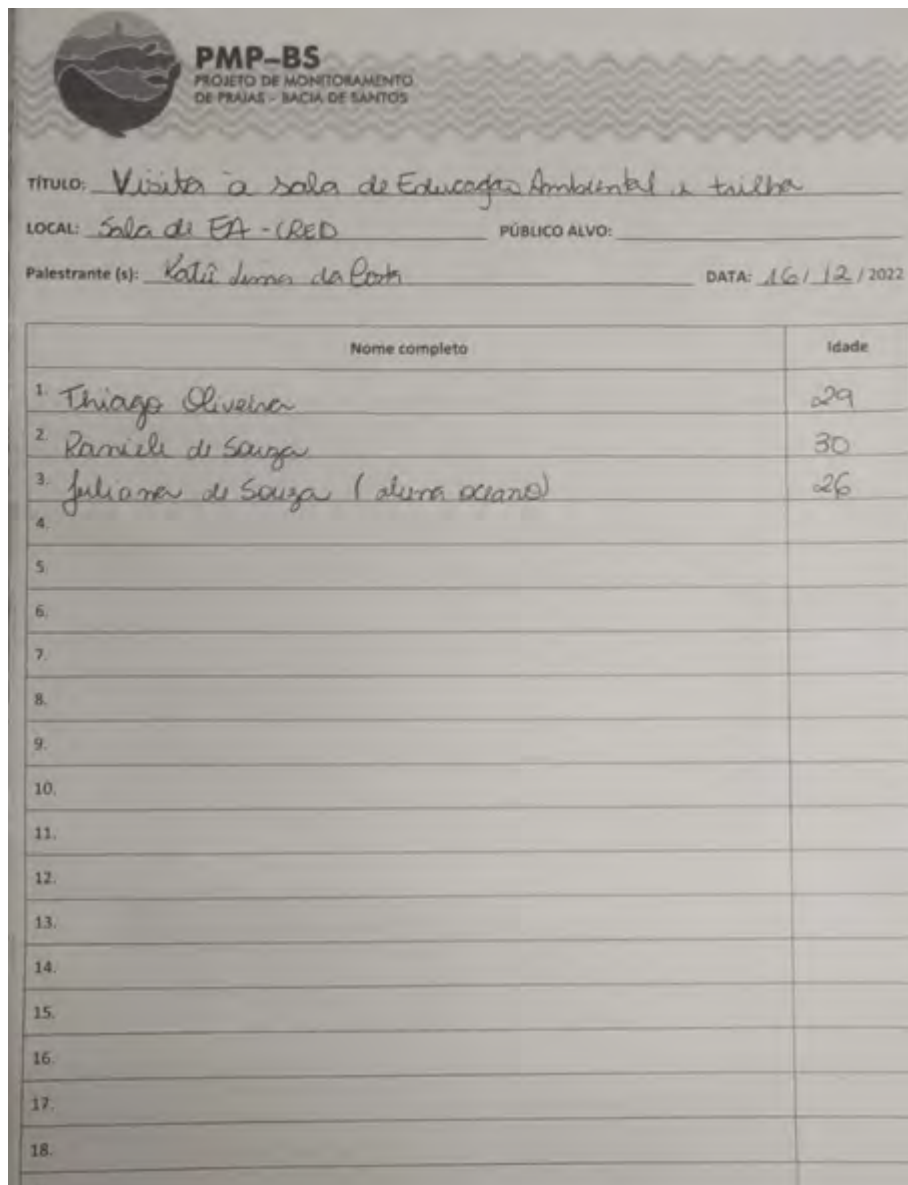 PMP-BS
PROJETO DE MONITORAMENTO
DE PRAIAS - BACIA DE SANTOS
TÍTULO: Visita à sala de Educação Ambiental e trilha
LOCAL: Sala de EA - CRED PÚBLICO ALVO:
Palestrante (s): da DATA: 16 / 12 / 2022
Nome completo Idade
1. Thiago Oliveira 29
2. Raniele de Souza 30
3. Juliana de Souza (aluna oceano) 26
4.
5.
6.
7.
8.
9.
10.
11.
12.
13.
14.
15.
16.
17.
18.